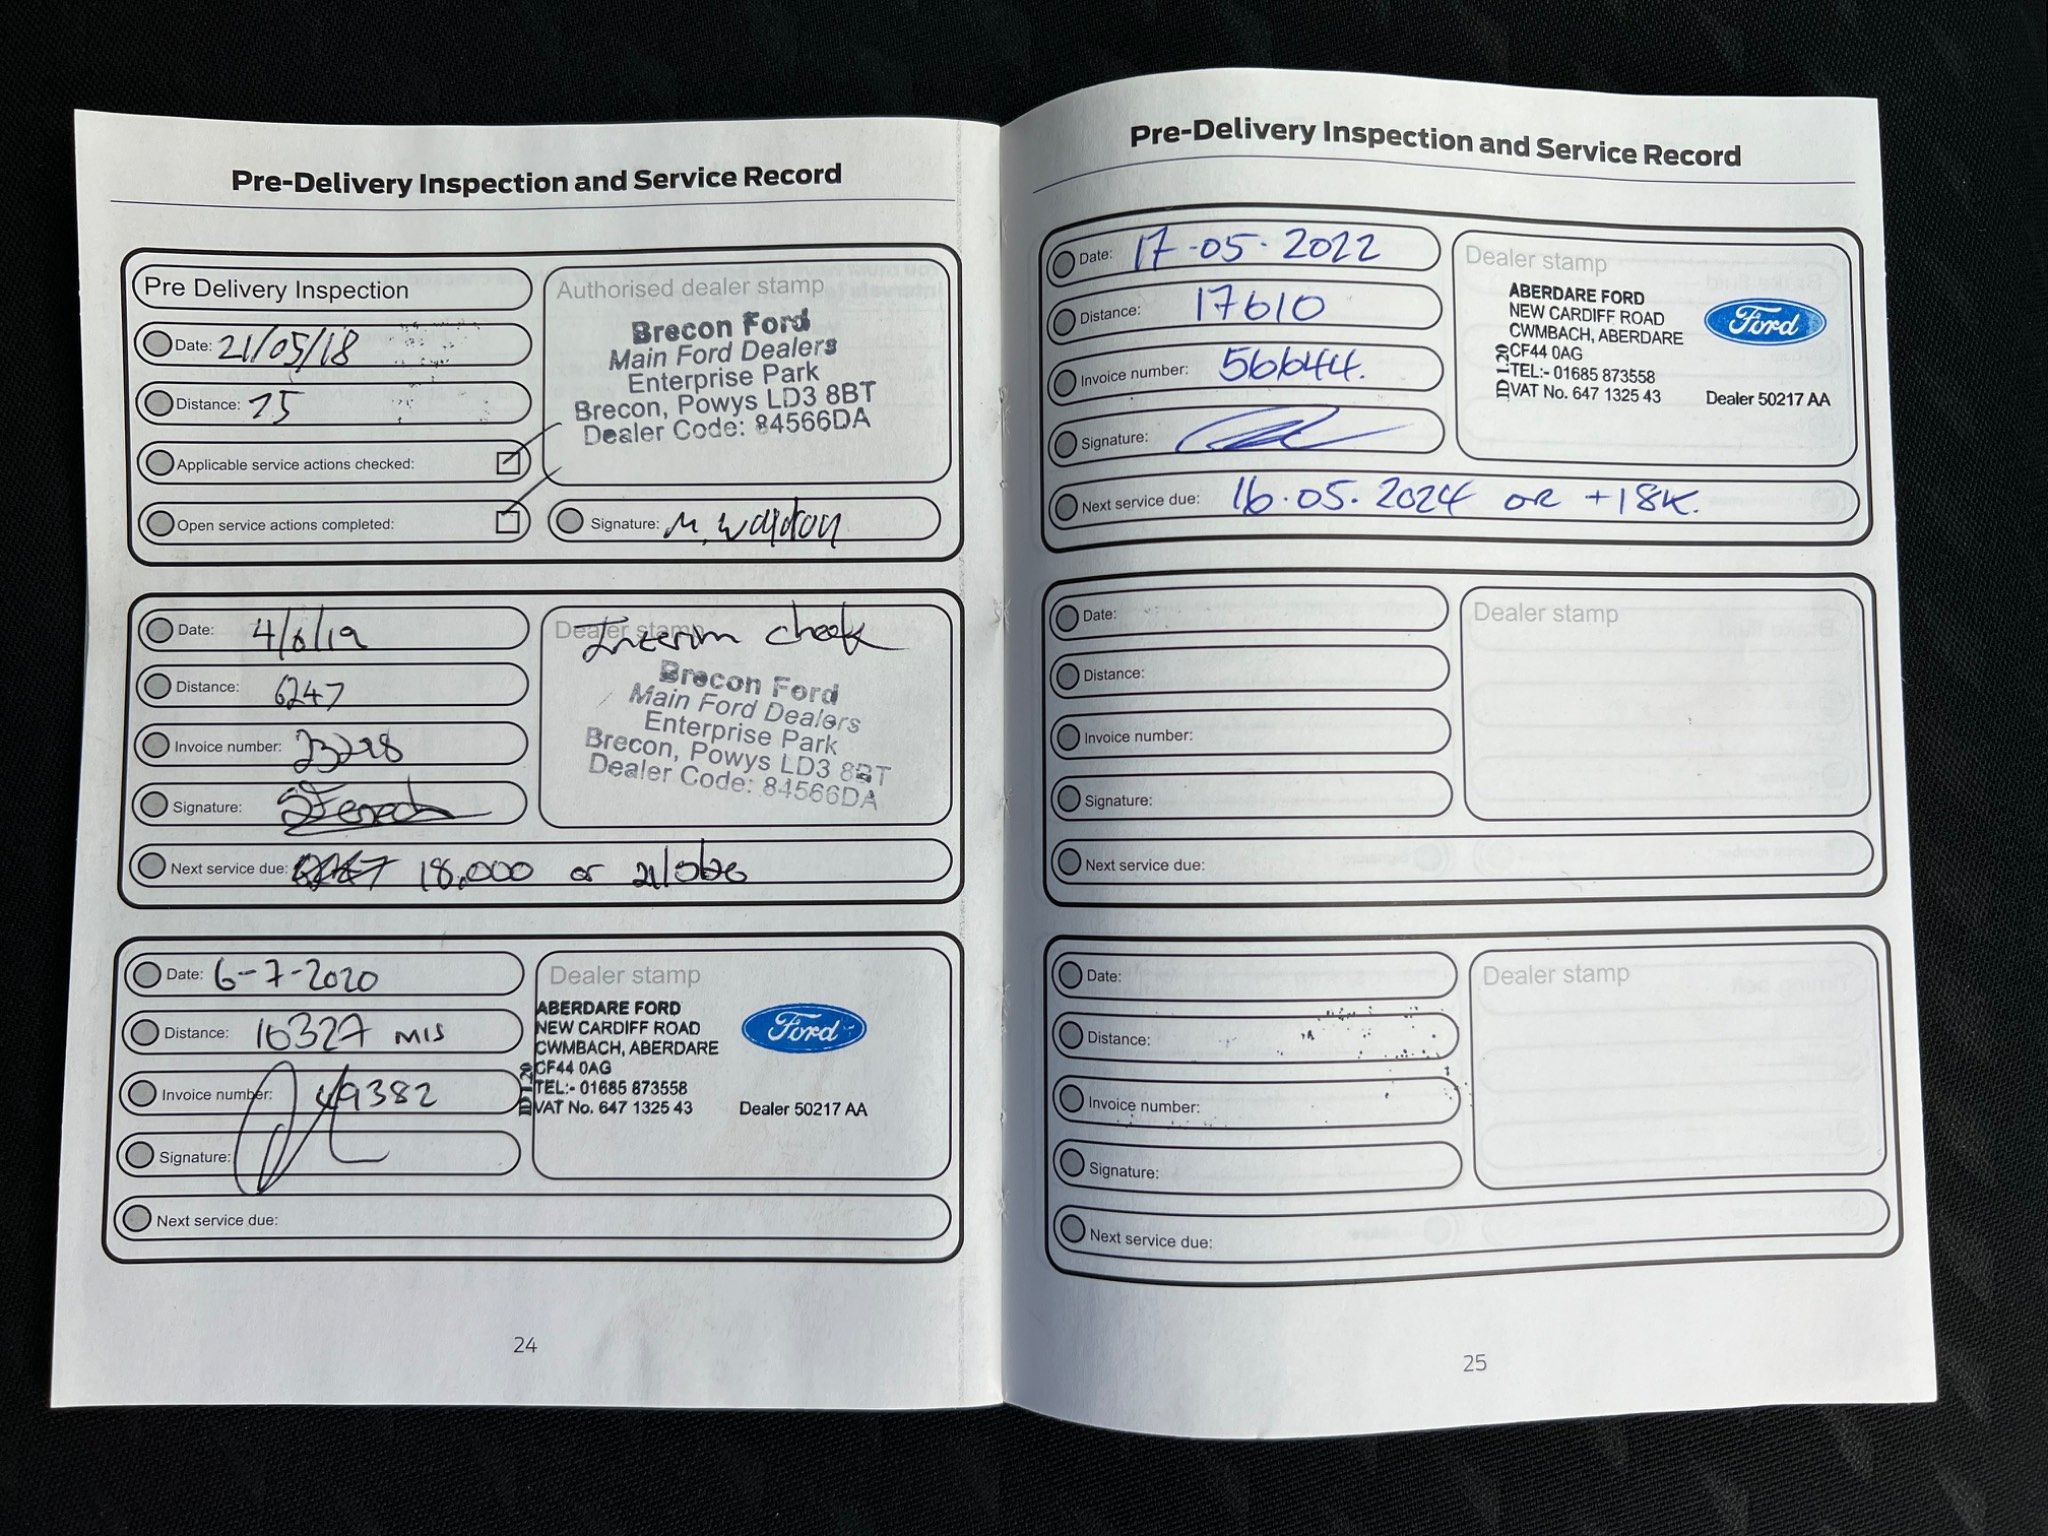 Pre-Delivery Inspection and Service Record
Pre Delivery Inspection
Date: 21/05/18
Distance: 15
Applicable service actions checked:
Open service actions completed:
Authorised dealer stamp
Brecon Ford
Main Ford Dealers
Enterprise Park
Brecon, Powys LD3 8BT
Dealer Code: 84566DA
Signature:
Date: 4/6/19
Distance: 6247
Invoice number:
Signature:
Next service due: 18,000 or
Dealer stamp
Interim check
Brecon Ford
Main Ford Dealers
Enterprise Park
Brecon, Powys LD3 8BT
Dealer Code: 84566DA
Date: 6-7-2020
Distance: 16327 MIS
Invoice number: 49382
Signature:
Next service due:
Dealer stamp
ABERDARE FORD
NEW CARDIFF ROAD
CWMBACH, ABERDARE
CF44 0AG
TEL:- 01685 873558
VAT No. 647 1325 43
Ford
Dealer 50217 AA
24
Pre-Delivery Inspection and Service Record
Date: 17-05-2022
Distance: 17610
Invoice number: 56644.
Signature:
Next service due: 16.05.2024 OR +18K.
Dealer stamp
ABERDARE FORD
NEW CARDIFF ROAD
CWMBACH, ABERDARE
CF44 0AG
TEL:- 01685 873558
VAT No. 647 1325 43
Ford
Dealer 50217 AA
Date:
Distance:
Invoice number:
Signature:
Next service due:
Dealer stamp
Date:
Distance:
Invoice number:
Signature:
Next service due:
Dealer stamp
25